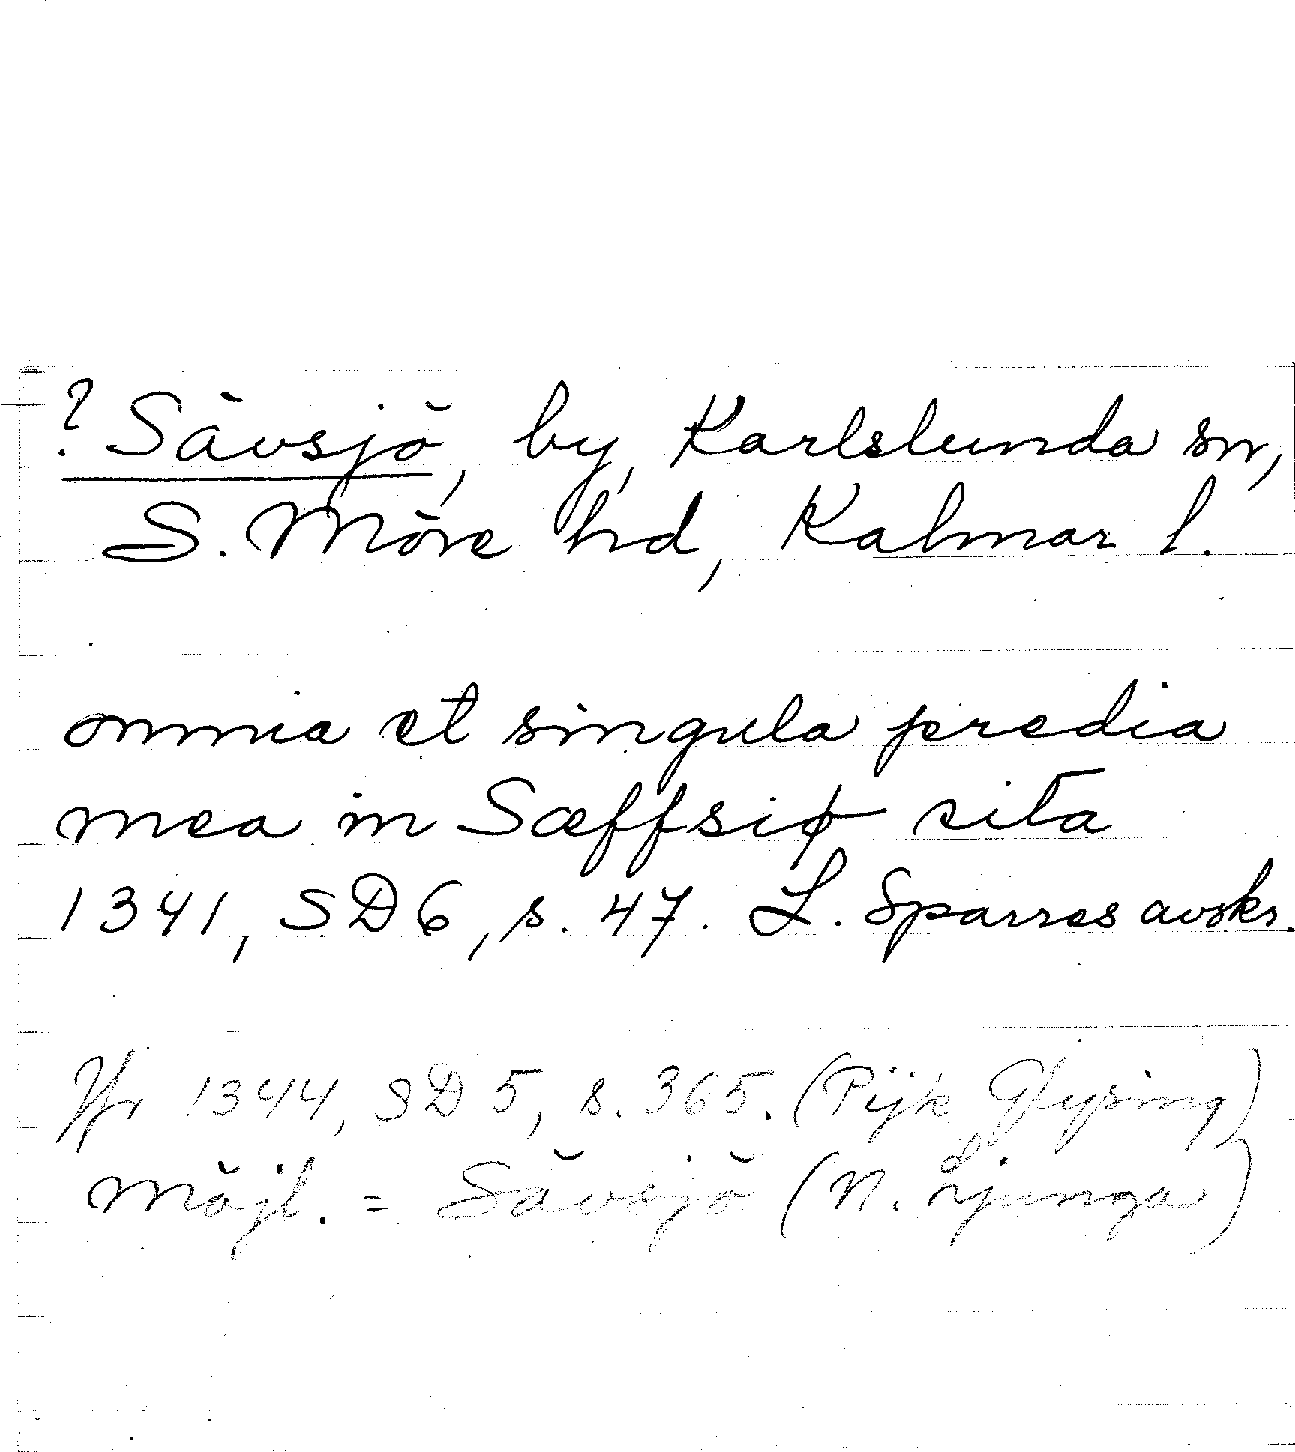 ? Sävsjö, by, Karlslunda sn,
S. Möre hd, Kalmar l.
omnia et singula predia
mea in Sæffsiø sita
1341, SD6, s. 47. L. Sparres avskr.
Jfr 1344, SD 5, s. 365. (Pijk Glysing)
Möjl. = Sävsjö (N. Ljunga)